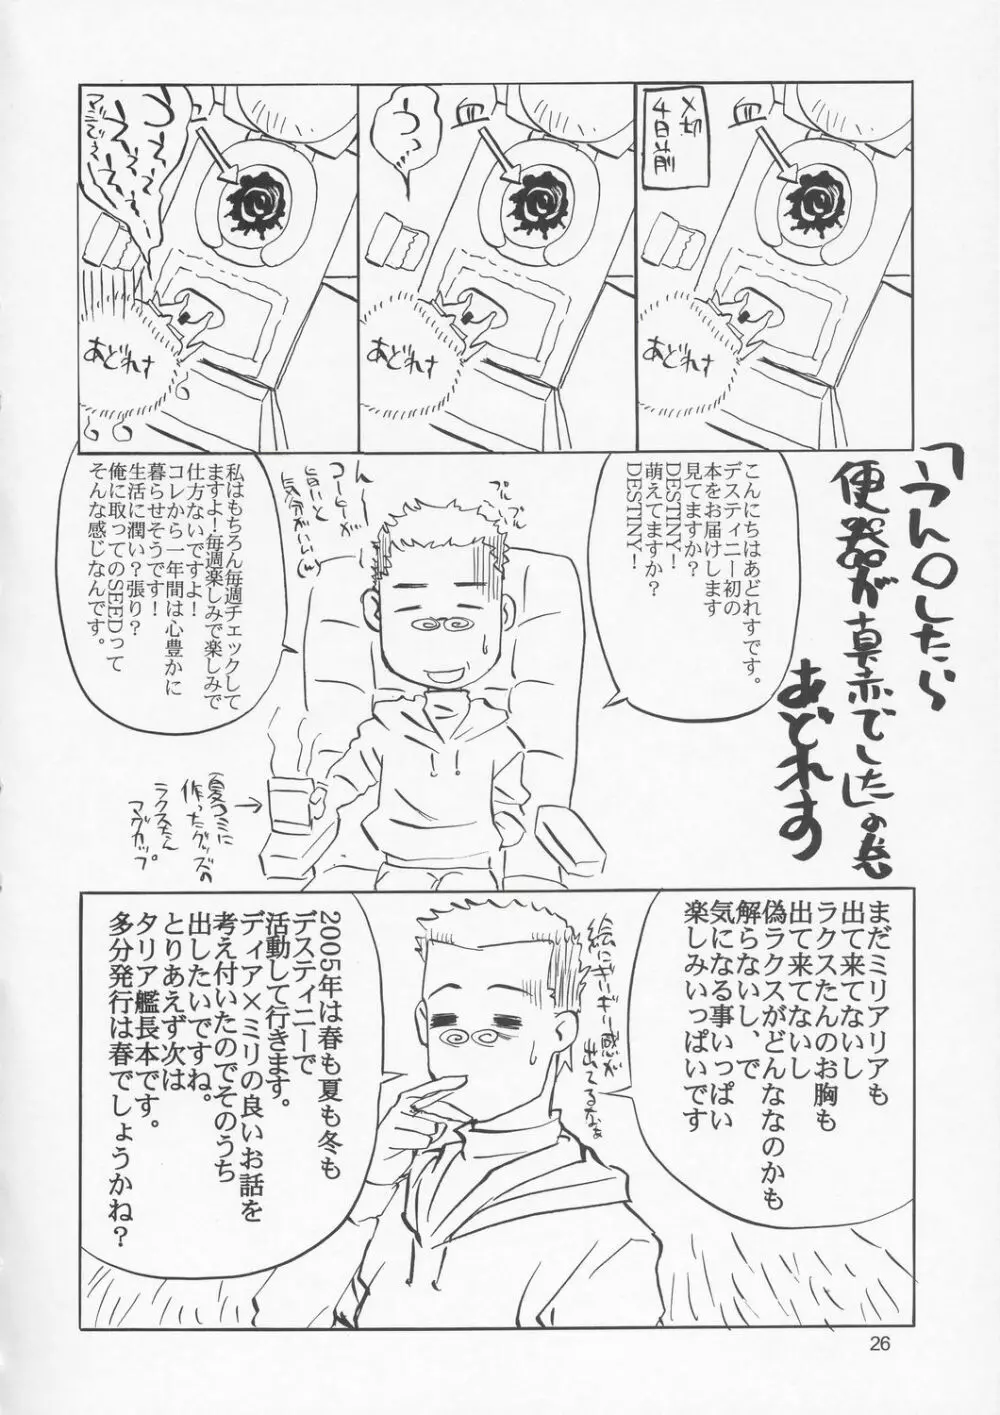 「うん〇したら
便器が真赤でした」の巻
あどれす
〆切
4日前
血
あどれす
血
うっ…
あどれす
血
あどれす
こんにちはあどれすです。
デスティニー初の
本をお届けします
見てますか?
DESTINY!
萌えてますか?
DESTINY!
プルプル
コーヒーが
旨いと
気分がいい
私はもちろん毎週チェックして
ますよ!毎週楽しみで楽しみで
仕方ないですよ!
コレから一年間は心豊かに
暮らせそうです!
生活に潤い?張り?
俺に取ってのSEEDって
そんな感じなんです。
夏コミに
作ったグッズの
ラクスたん
マグカップ。
まだミリアリアも
出て来てないし
ラクスたんのお胸も
出て来てないし
偽ラクスがどんななのかも
解らないし、で
気になる事いっぱい
楽しみいっぱいです
絵にギリギリ感が
出てるなぁ
2005年は春も夏も冬も
デスティニーで
活動して行きます。
ディア×ミリの良いお話を
考え付いたのでそのうち
出したいですね。
とりあえず次は
タリア艦長本です。
多分発行は春でしょうかね?
26